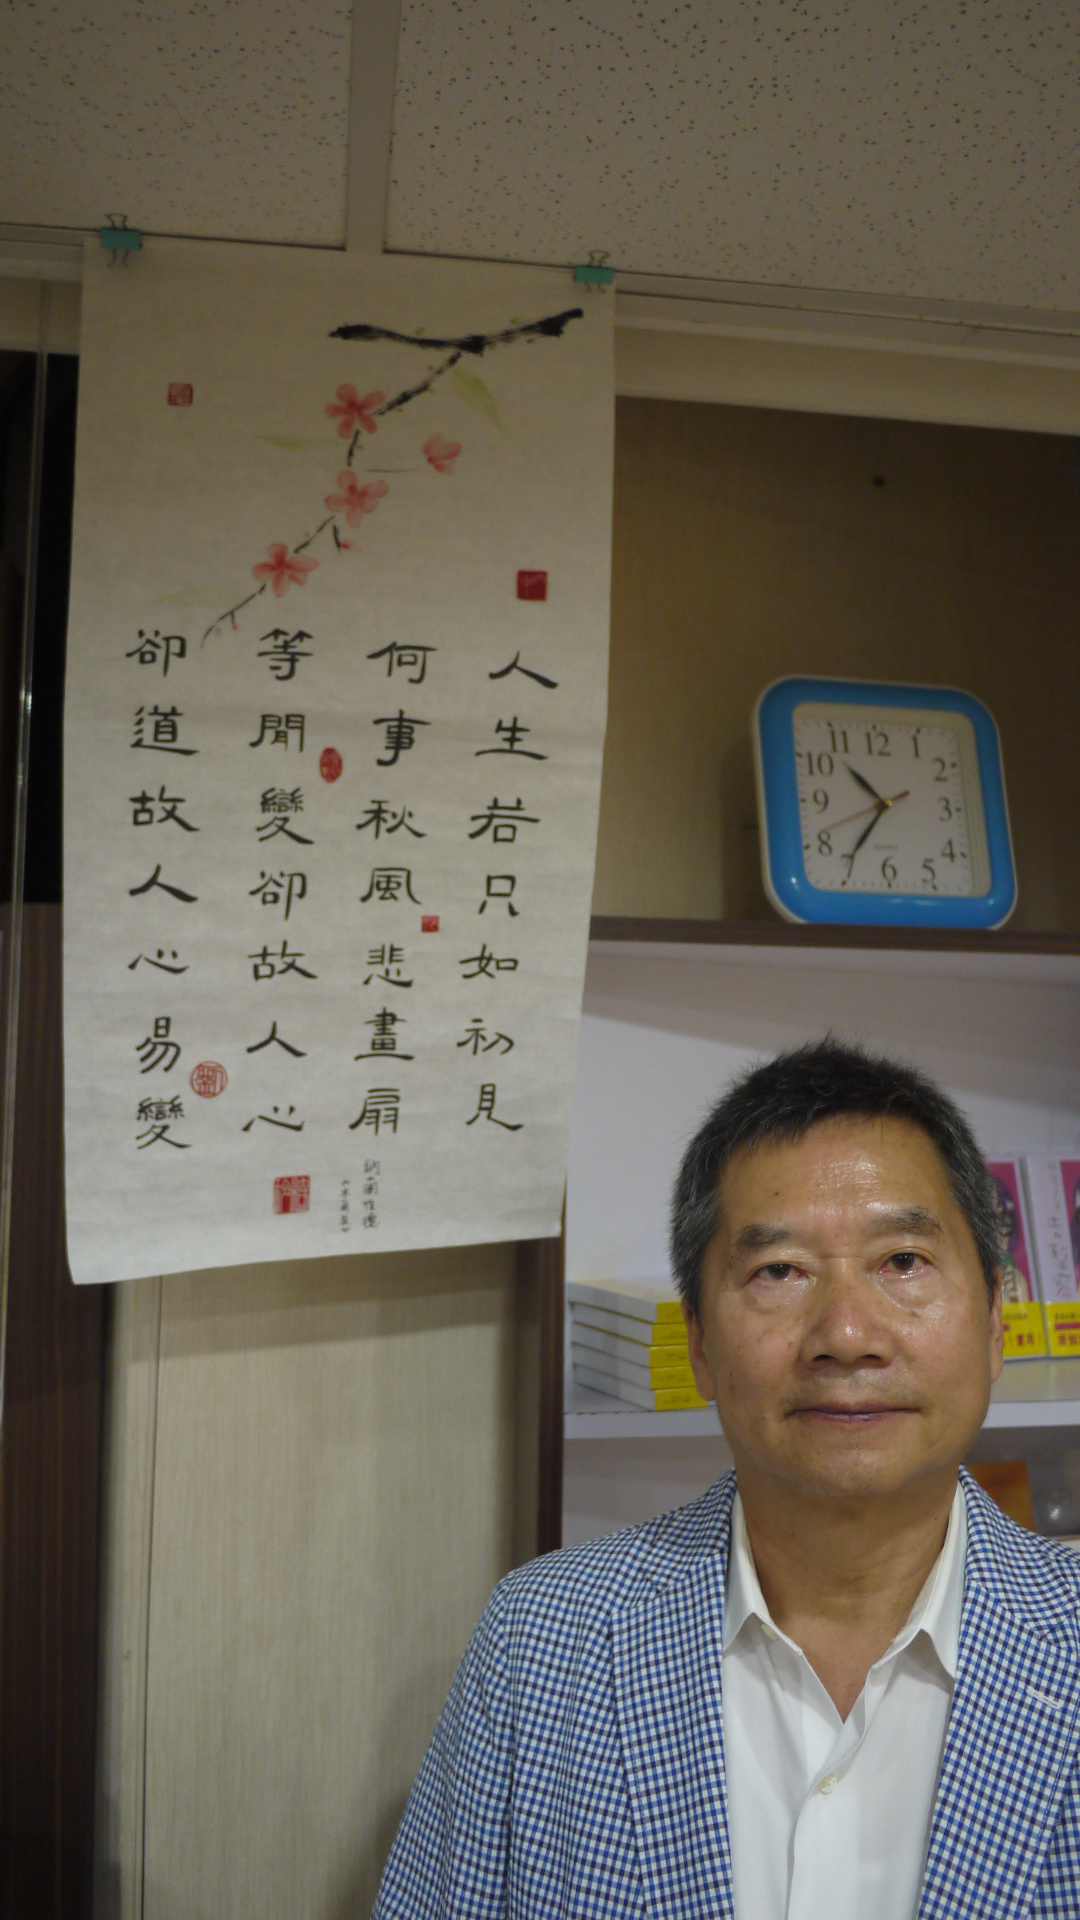 人生若只如初見
何事秋風悲畫扇
等閒變卻故人心
卻道故人心易變
納蘭性德
11 12 1
10 2
9 3
8 4
7 6 5
QUARTZ